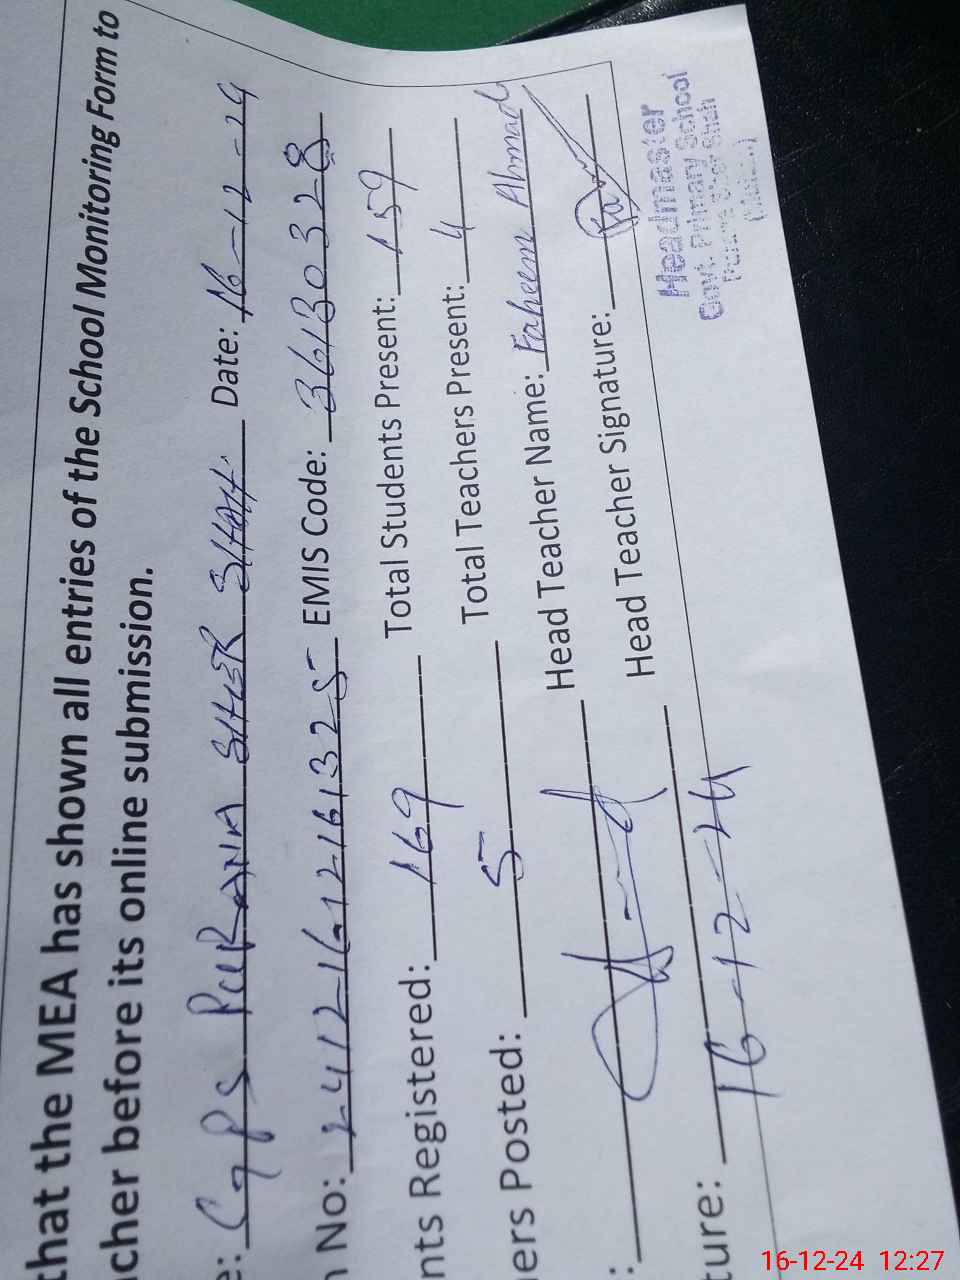 that the MEA has shown all entries of the School Monitoring Form to
cher before its online submission.
e: GPS PURANA SHER SHAH. Date: 16-12-24
No: 2412-16-1216132-5 EMIS Code: 36130328
nts Registered: 169 Total Students Present: 159
ers Posted: 5 Total Teachers Present: 4
: Head Teacher Name: Faheem Ahmad
ture: Head Teacher Signature:
16-12-24
Headmaster
Govt. Primary School
Purana Sher Shah
(Multan)
16-12-24 12:27